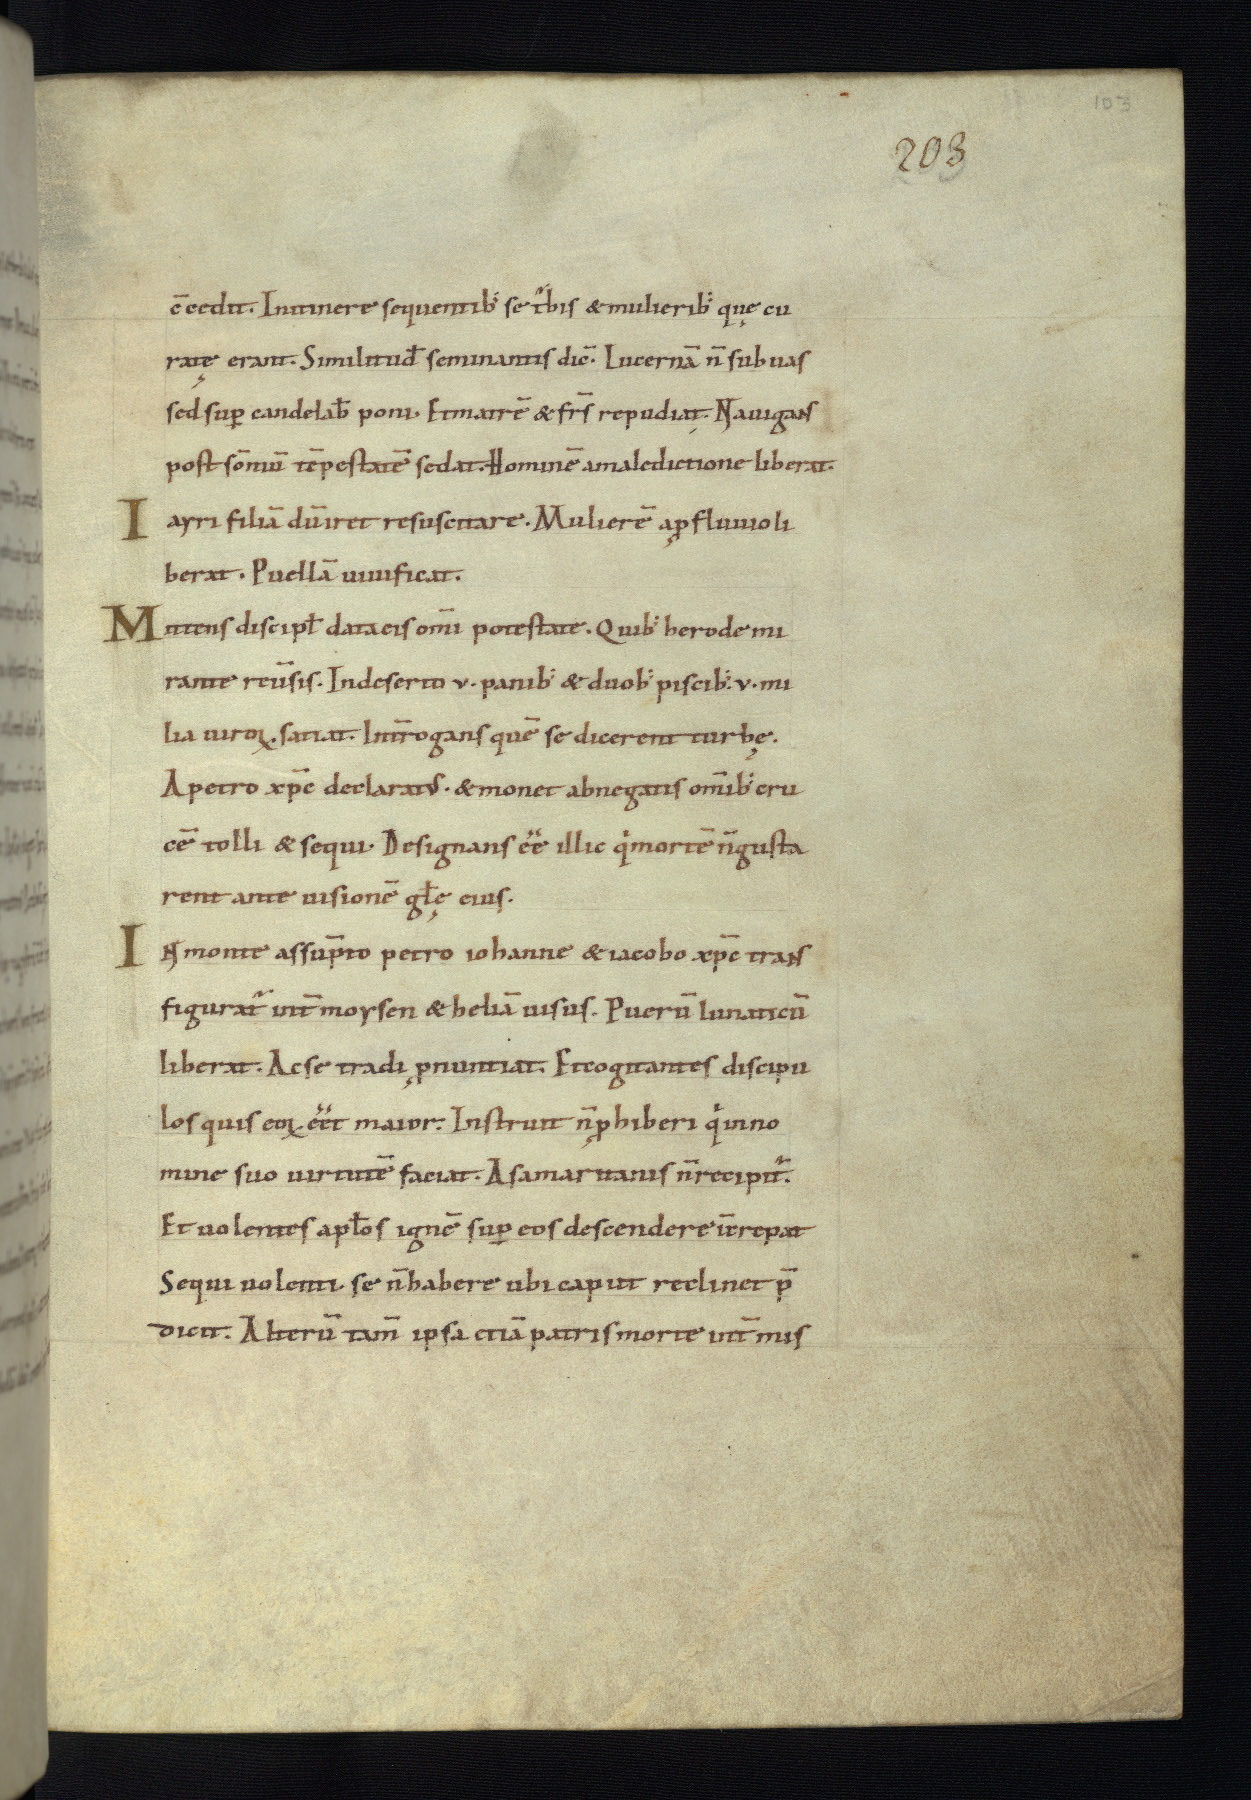 103
203
c̄cedit. Initinere sequentib; se t᷑bis & mulierib; quę cu
ratę erant. Similitud̄ seminantis dic̄. Lucernā n̄ sub uas
sed suꝑ candelab̄ poni. Et matrē & fr̄s repudiat. Nauigans
post somnū tēpestatē sedat. Hominē a maledictione liberat.
Iayri filiā dū iret resuscitare. Mulierē a ꝓfluuio li
berat. Puellā uiuificat.
Mittens discipl̄ data eis om̄i potestate. Quib; herode mi
rante reūsis. In deserto .v. panib; & duob; piscib; .v. mi
lia uiroꝝ satiat. Int̄rogans quē se dicerent turbę.
A petro xp̄c declaratus. & monet abnegatis om̄ib; cru
cē tolli & sequi. Designans ēē illic qͥ mortē n̄ gusta
rent ante uisionē gl̄ę eius.
IN monte assūpto petro iohanne & iacobo xp̄c trans
figurat᷑ int̄ moysen & heliā uisus. Puerū lunaticū
liberat. Ac se tradi ꝓnuntiat. Et cogitantes discipu
los quis eoꝝ ēēt maior. Instruit n̄ ꝓhiberi qͥ in no
mine suo uirtutē faciat. A samaritanis n̄ recipit᷑.
Et uolentes apl̄os ignē suꝑ eos descendere īcrepat
Sequi uolenti. se n̄ habere ubi caput reclinet p̄
dicit. Alterū tam̄ ipsa etiā patris morte int̄ mis